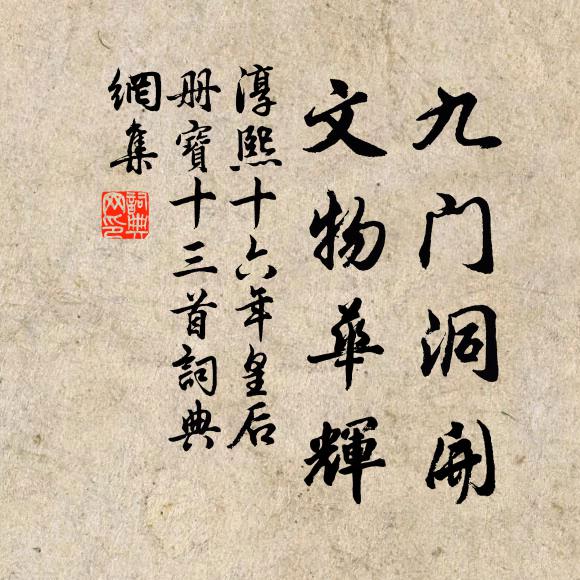 九门洞開
文物華輝
淳熙十六年皇后
册寶十三首詞典
網集
詞典網印